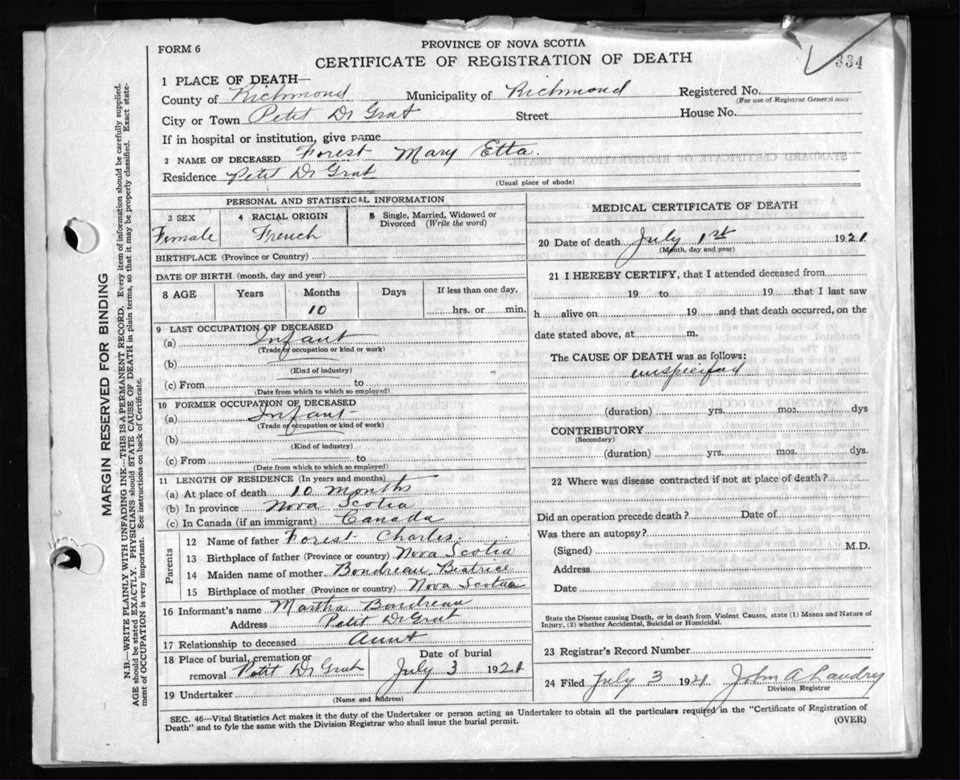 FORM 6
PROVINCE OF NOVA SCOTIA
CERTIFICATE OF REGISTRATION OF DEATH
334
1 PLACE OF DEATH—
County of Richmond Municipality of Richmond Registered No.
(For use of Registrar General only)
City or Town Petit De Grat Street House No.
If in hospital or institution, give name
2 NAME OF DECEASED Forest Mary Etta.
Residence Petit De Grat
(Usual place of abode)
PERSONAL AND STATISTICAL INFORMATION
3 SEX 4 RACIAL ORIGIN 5 Single, Married, Widowed or Divorced (Write the word)
Female French
BIRTHPLACE (Province or Country)
DATE OF BIRTH (month, day and year)
8 AGE Years Months Days If less than one day,
10 hrs. or min.
9 LAST OCCUPATION OF DECEASED
(a) Infant
(Trade or occupation or kind or work)
(b)
(Kind of industry)
(c) From to
(Date from which to which so employed)
10 FORMER OCCUPATION OF DECEASED
(a) Infant
(Trade or occupation or kind of work)
(b)
(Kind of industry)
(c) From to
(Date from which to which so employed)
11 LENGTH OF RESIDENCE (In years and months)
(a) At place of death 10 Months
(b) In province Nova Scotia
(c) In Canada (if an immigrant) Canada
Parents
12 Name of father Forest Charles.
13 Birthplace of father (Province or country) Nova Scotia
14 Maiden name of mother Bondreau, Beatrice
15 Birthplace of mother (Province or country) Nova Scotia
16 Informant's name Martha Bondreau
Address Petit De Grat
17 Relationship to deceased Aunt
18 Place of burial, cremation or removal Petit De Grat
Date of burial July 3 1921
19 Undertaker
(Name and Address)
MEDICAL CERTIFICATE OF DEATH
20 Date of death July 1st 1921
(Month, day and year)
21 I HEREBY CERTIFY, that I attended deceased from
19 to 19 that I last saw
h alive on 19 and that death occurred, on the
date stated above, at m.
The CAUSE OF DEATH was as follows:
unspecified
(duration) yrs. mos. dys
CONTRIBUTORY
(Secondary)
(duration) yrs. mos. dys.
22 Where was disease contracted if not at place of death?
Did an operation precede death? Date of
Was there an autopsy?
(Signed) M.D.
Address
Date
State the Disease causing Death, or in death from Violent Causes, state (1) Means and Nature of
Injury, (2) whether Accidental, Suicidal or Homicidal.
23 Registrar's Record Number
24 Filed July 3 1921 John A Landry
Division Registrar
SEC. 46—Vital Statistics Act makes it the duty of the Undertaker or person acting as Undertaker to obtain all the particulars required in the "Certificate of Registration of
Death" and to fyle the same with the Division Registrar who shall issue the burial permit.
(OVER)
MARGIN RESERVED FOR BINDING
N.B.—WRITE PLAINLY WITH UNFADING INK—THIS IS A PERMANENT RECORD. Every item of information should be carefully supplied.
AGE should be stated EXACTLY. PHYSICIANS should STATE CAUSE OF DEATH in plain terms, so that it may be properly classified. Exact state-
ment of OCCUPATION is very important. See instructions on back of Certificate.